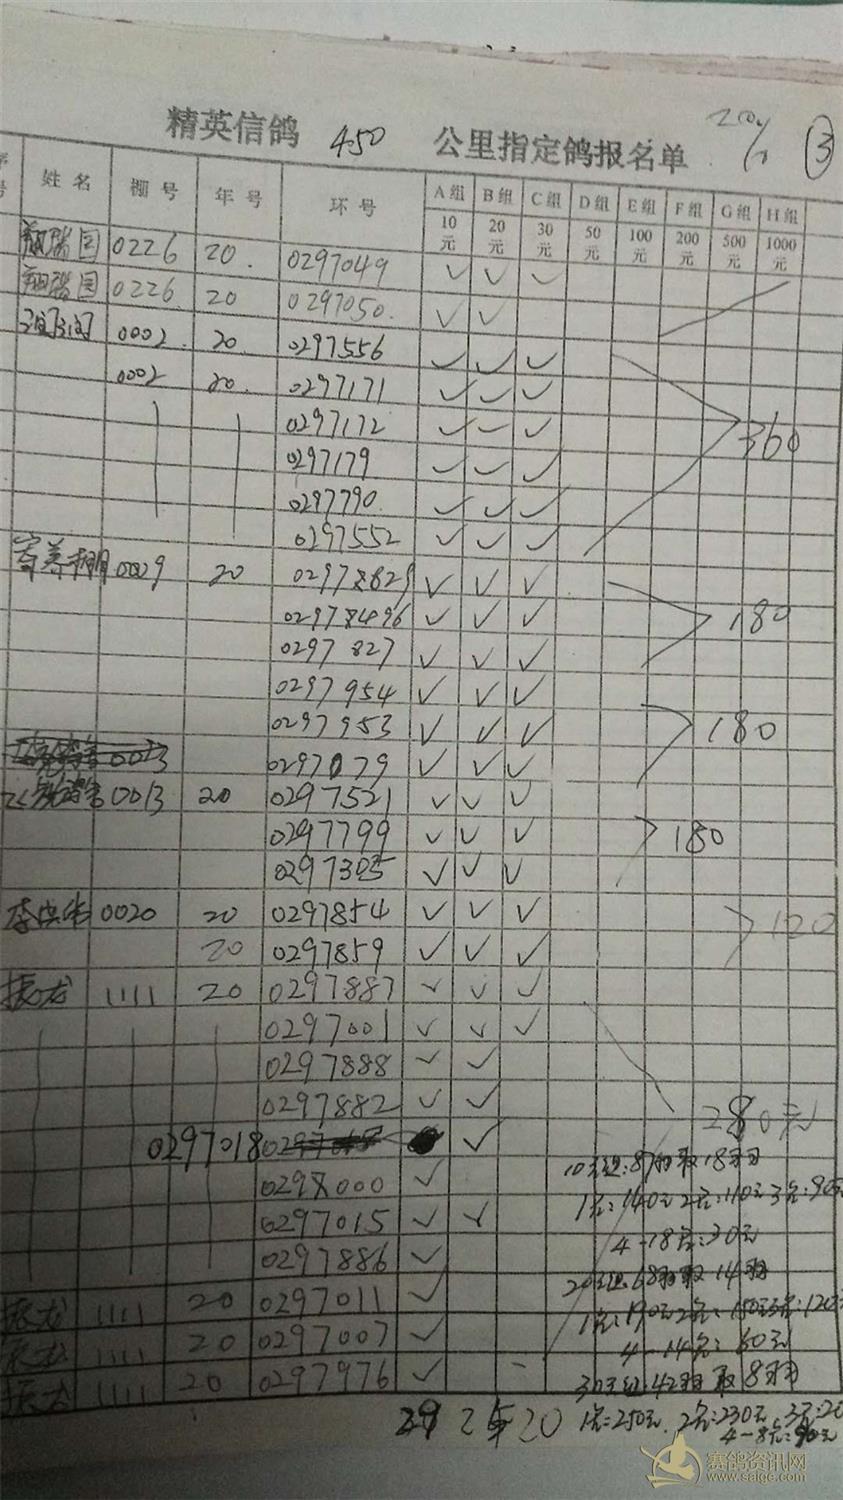 精英信鸽 450 公里指定鸽报名单 ③
序号 姓名 棚号 年号 环号 A组 B组 C组 D组 E组 F组 G组 H组
10元 20元 30元 50元 100元 200元 500元 1000元
0226 20. 0297049 ✓ ✓ ✓
0226 20 0297050. ✓ ✓
0002. 20. 0297556 ✓ ✓ ✓
0002 20. 0297171 ✓ ✓ ✓
0297172 ✓ ✓ ✓ 360
0297179 ✓ ✓ ✓
0297790. ✓ ✓ ✓
0297552 ✓ ✓ ✓
寄养棚 0029 20 02978829 ✓ ✓ ✓
02978496 ✓ ✓ ✓ 180
0297 827 ✓ ✓ ✓
0297 954 ✓ ✓ ✓
0297 953 ✓ ✓ ✓ 180
0297079 ✓ ✓ ✓
0013 20 0297521 ✓ ✓ ✓
0297799 ✓ ✓ ✓ 180
0297305 ✓ ✓ ✓
0020 20 0297854 ✓ ✓ ✓ 120
20 0297859 ✓ ✓ ✓
振龙 1111 20 0297887 ✓ ✓ ✓
0297001 ✓ ✓ ✓
0297888 ✓ ✓
0297882 ✓ ✓ 280元
0297018 ✓
10元组:87羽取18羽
0298000 ✓
1名:140元 2名:110元 3名:90元
0297015 ✓ ✓
4-18名:30元
0297886 ✓
20元组68羽取14羽
振龙 1111 20 0297011 ✓
1名:190元 2名:150元 3名:120元
振龙 1111 20 0297007 ✓
4-14名:60元
振龙 1111 20 0297976 ✓
30元组:42羽取8羽
29 25 20 1名=250元 2名:230元 3名:20
4-8名:90元
赛鸽资讯网
www.saige.com